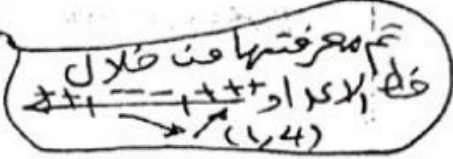 تم معرفتها من خلال
خط الاعداد
++ --- +++
(1,4)